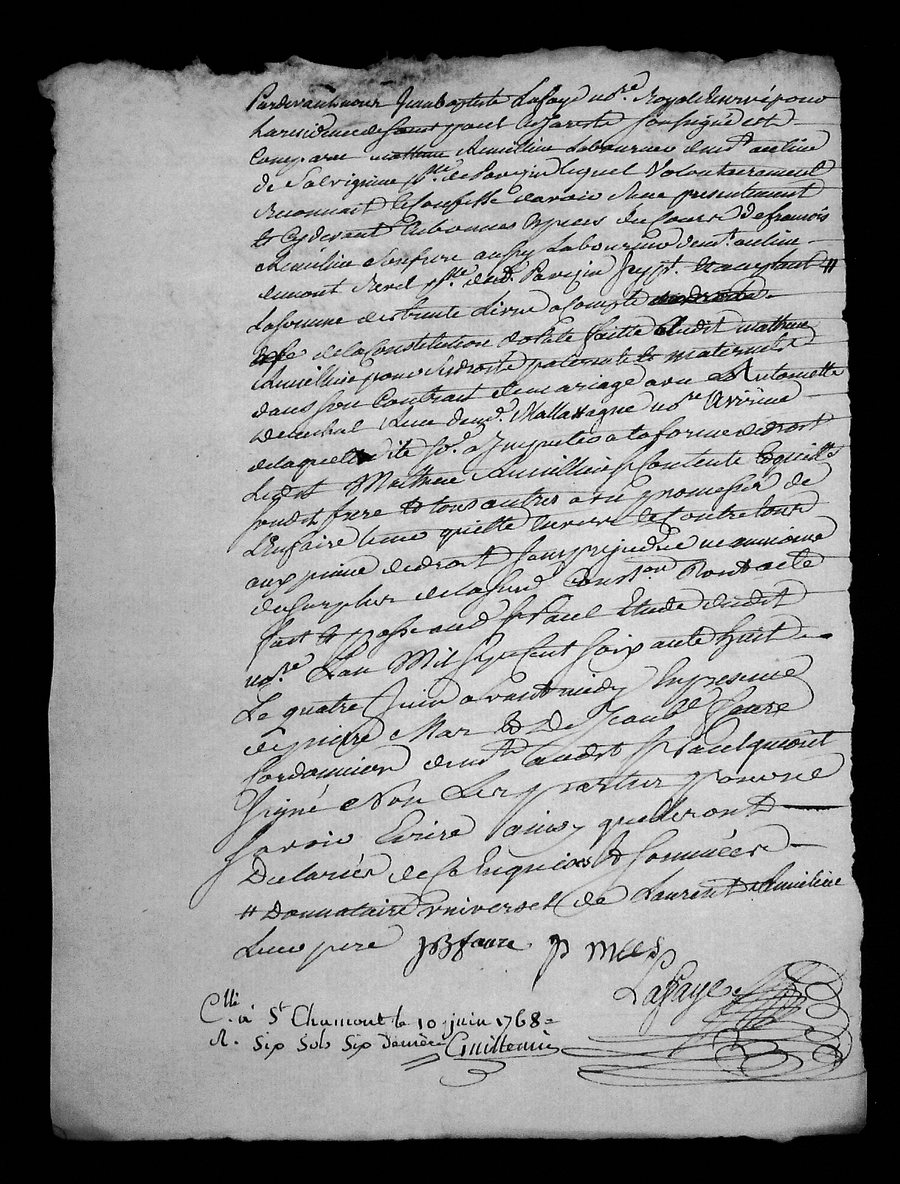 Pardevant nous Jean baptiste Lafaye no.re Royal Reservé pour
la residence de saint paul en Jarest soussigné est
Comparu mathieu Rimilline Laboureur dem.t au lieu
de Salvignieu p.sse de Pavezin lequel volontairement
Reconnait et Confesse d'avoir Receu presentement
et Cydevant En bonnes Espèces du Cours de francois
Rimilline son frere aussy Laboureur dem.t au lieu
du mont Revel p.sse dud. Pavezin p.nt et acceptant #
La somme de trente Livres a Compte
de la Constitution dotale faitte audit mathieu
Rimilline pour ses droits paternels et maternels
dans son Contrat de mariage avec Antoinette
Receu dud. Mallassagne no.re
de laquelle dite so.e a Imputer a la forme de droit
Ledit Mathieu Rimilline se Contente et quitte
sondit frere et tous autres avec promesse de
L'En faire tenir quitte Envers et Contre tous
aux peine de droit sans prejudice neanmoins
du surplus de la susd. Const.on Dont acte
fait et passé aud. St Paul Etude dudit
no.re L'an Mil sept Cent soixante huit
Le quatre Juin avant midy En presence
de pierre Mas et de Jean b.te Faure
Cordonnier dem.ts audit St Paul qui ont
signé Non Les parties pour ne
savoir Ecrire ainsy quelles ont
Declarés de ce Enquises et sommées
# Donnataire universel de Laurent Rimilline
Leur pere JBfaure p mees
Lafaye
C.llé à St Chamont le 10 juin 1768 =
R. Six Sols Six deniers Guillemin